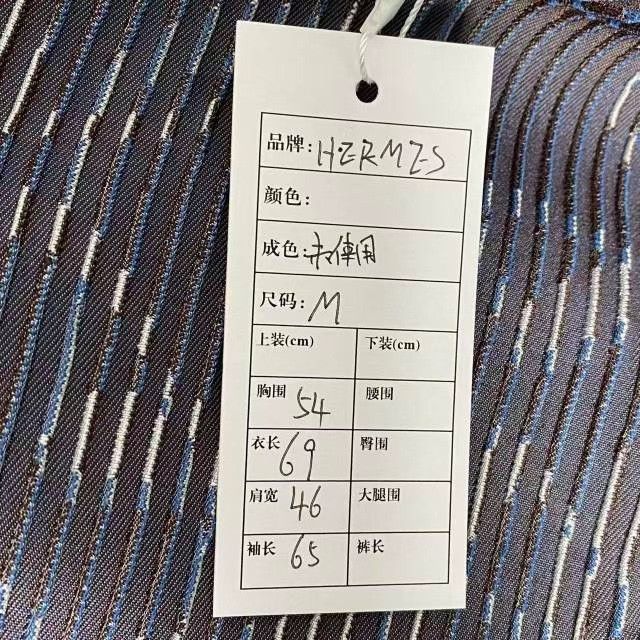 品牌: HERMES
颜色:
成色: 未使用
尺码: M
上装(cm) 下装(cm)
胸围 54 腰围
衣长 69 臀围
肩宽 46 大腿围
袖长 65 裤长